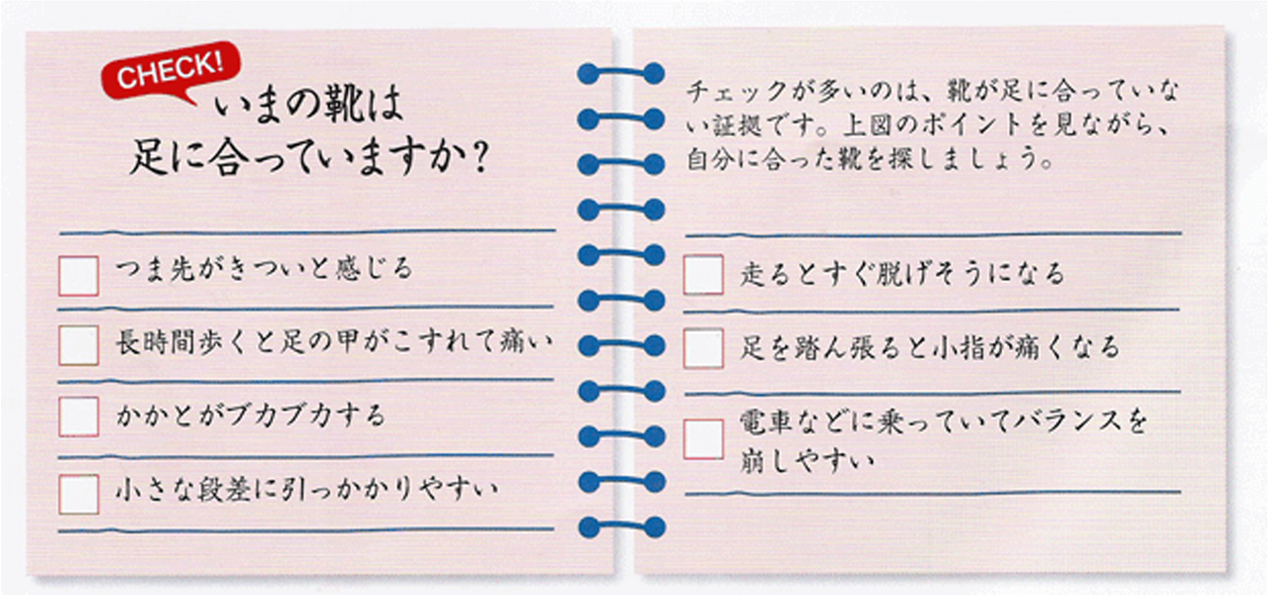 CHECK!
いまの靴は
足に合っていますか？
つま先がきついと感じる
長時間歩くと足の甲がこすれて痛い
かかとがブカブカする
小さな段差に引っかかりやすい
チェックが多いのは、靴が足に合っていな
い証拠です。上図のポイントを見ながら、
自分に合った靴を探しましょう。
走るとすぐ脱げそうになる
足を踏ん張ると小指が痛くなる
電車などに乗っていてバランスを
崩しやすい